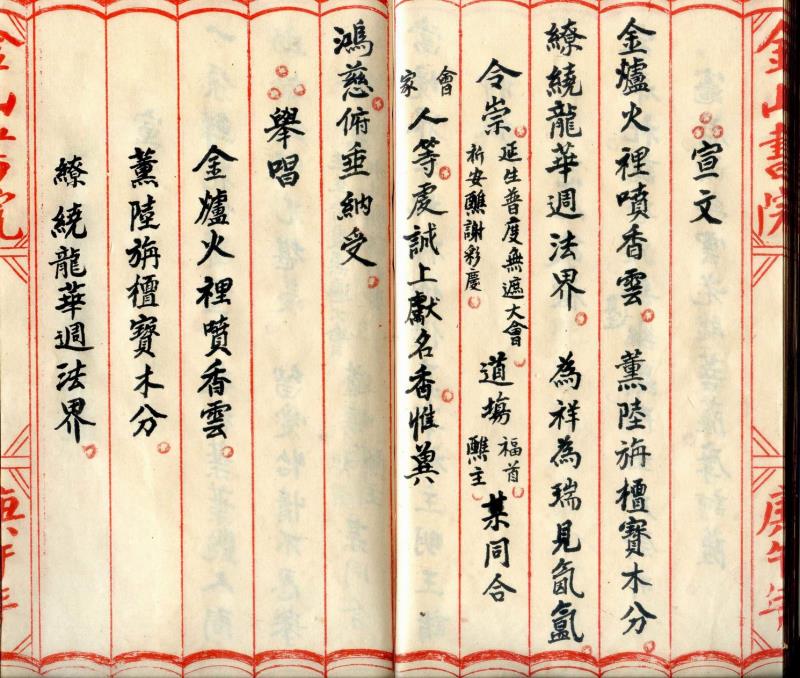 宣文
金爐火裡噴香雲 薰陸旃檀寶木分
繚繞龍華週法界 為祥為瑞見氤氳
令崇 延生普度無遮大會 祈安醮謝彩慶 道場 福首 醮主 某同合
會家人等虔誠上獻名香惟冀
鴻慈俯垂納受
舉唱
金爐火裡噴香雲
薰陸旃檀寶木分
繚繞龍華週法界
金山書院
庚午年
金山書院
庚午年